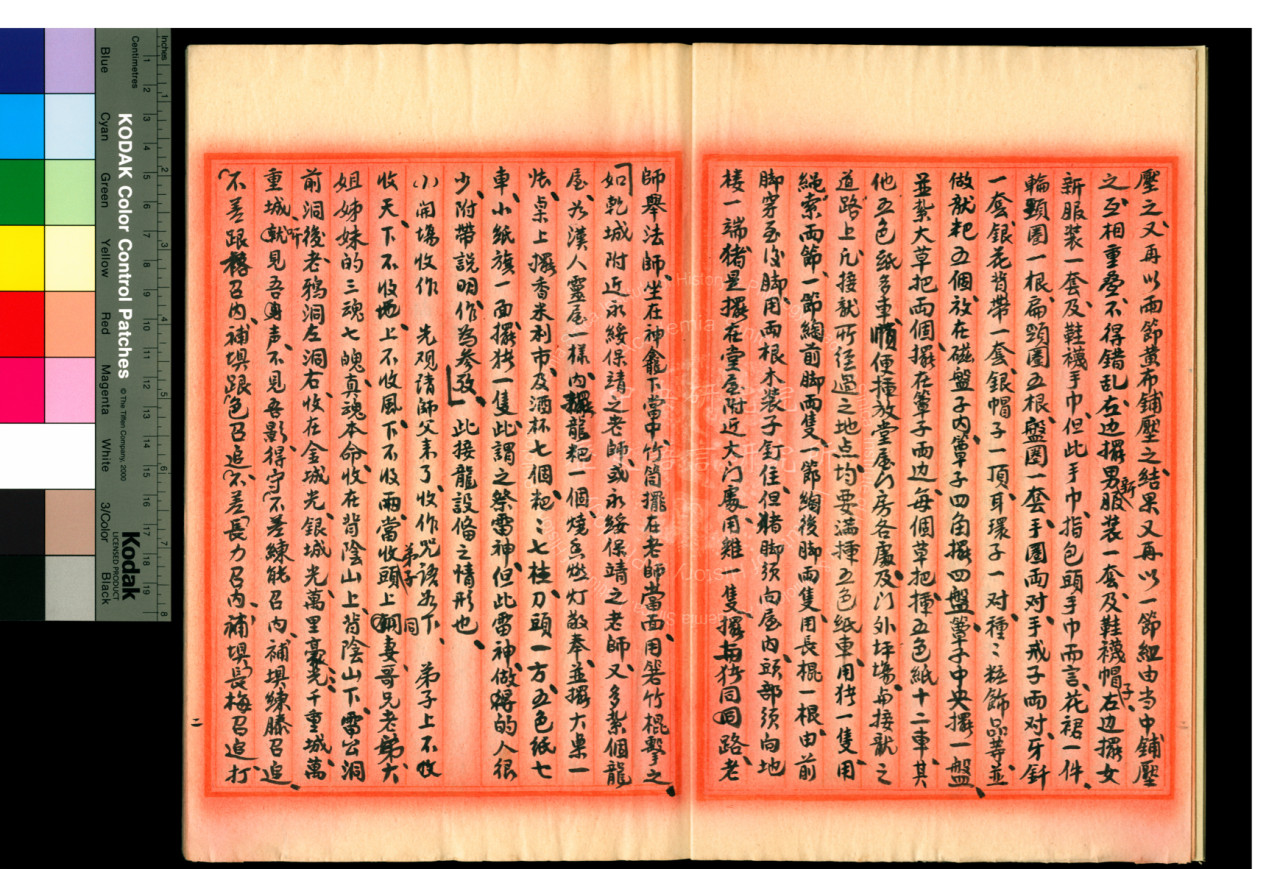 壓之、又再以両節黄布鋪壓之、結果又再以一節紐由当中鋪壓
之、互相重叠、不得錯乱、右边擺男新服装一套、及鞋襪帽子、左边擺女
新服装一套、及鞋襪手巾、但此手巾、指包頭手巾而言、花裙一件、
輪頸圈一根、扁頸圈五根、盤圈一套、手圈両对、手戒子両对、牙釺
一套、銀花背带一套、銀帽子一頂、耳環子一对、種々粒飾品等、並
做龍粑五個、放在磁盤子内、簞子四角擺四盤、簞子中央擺一盤、
並紥大草把両個、擺在簞子両边、每個草把揷五色紙十二車、其
他五色紙多車、順便揷放堂屋、门房各處、及门外坪場、与接龍之
道路上、凡接龍所徑過之地点、均要滿揷五色紙車、用猪一隻、用
繩索両節、一節綯前脚両隻、一節綯後脚両隻、用長棍一根、由前
脚穿至後脚、用両根木装子釘住、但猪脚須向屋内、頭部須向地
楼一端、猪是擺在堂屋附近大门處、用雞一隻、擺与猪同路、老
師舉法師、坐在神龕下當中、竹筒擺在老師當面、用箬竹棍擊之、
如乾城附近永綏保靖之老師、或永綏保靖之老師、又多紥個龍
屋、为漢人靈屋一樣、内擺龍粑一個、燒香燃灯敬奉、並擺大桌一
张、桌上擺香米利市、及酒杯七個、粑々七柱、刀頭一方、五色紙七
車、小紙旗一面、擺猪一隻、此謂之祭雷神、但此雷神、做得的人很
少、附带説明、作為参攷、 此接龍設俻之情形也、
小、開場收作 先观請師父来了、收作咒语为下、 弟子上不收
收天、下不收地、上不收風、下不收雨、當收頭上弟子同妻哥兄老弟、大
姐姊妹的三魂七魄、真魂本命、收在背陰山上、背陰山下、雷公洞
前、洞後老鴉洞、左洞右、收在金城光銀城光、萬里豪光、千重城、萬
重城、聽見吾声、不見吾影、得守、不差練能召内、補埧練滕召追、
不差跟召内、補埧跟色召追、不差長力召内、補埧長梅召追、打
二
KODAK Color Control Patches
© The Tiffen Company, 2000
Kodak
LICENSED PRODUCT
Inches
Centimetres
Blue
Cyan
Green
Yellow
Red
Magenta
White
3/Color
Black